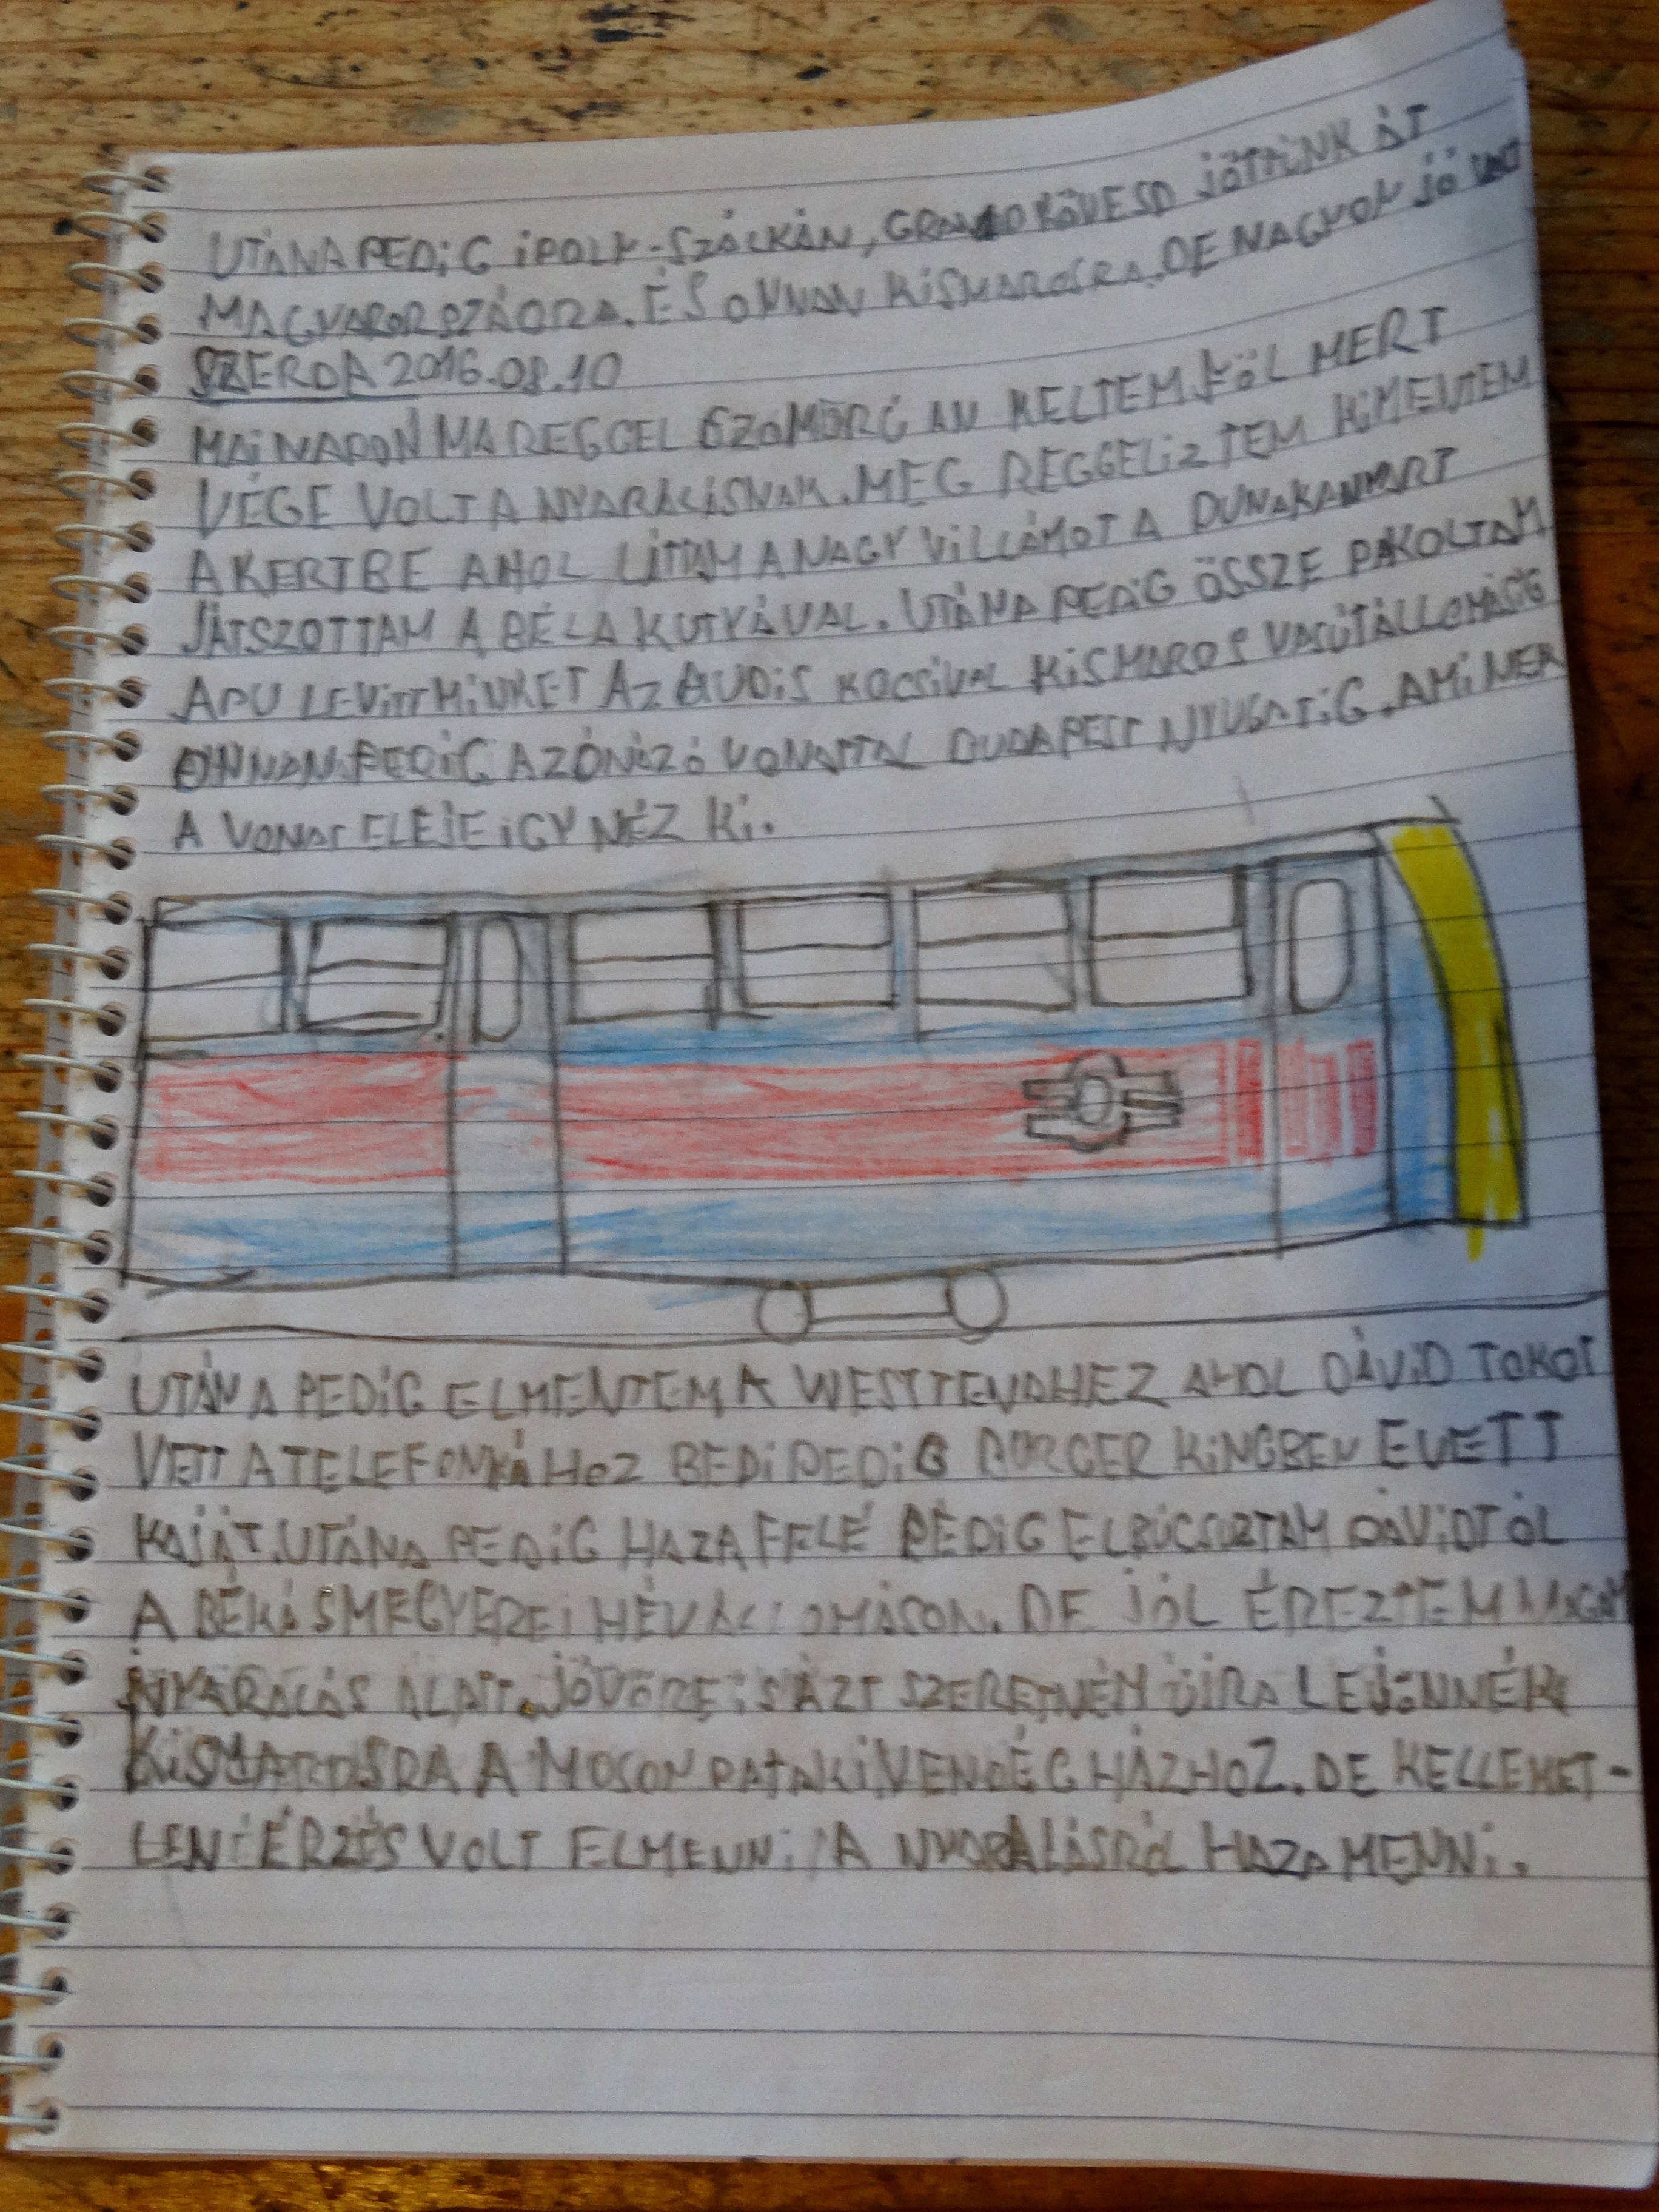 UTÁNA PEDIG IPOLY-SZÁLKÁN, KÖVESD JÖTTÜNK ÁT
MAGYARORSZÁGRA. ÉS ONNAN KISMAROSRA. DE NAGYON JÓ VOLT
SZERDA 2016.08.10
MAI NAPON MA REGGEL SZOMORÚAN KELTEM FÖL MERT
VÉGE VOLT A NYARALÁSNAK. MEG REGGELIZTEM KIMENTEM
A KERTBE AHOL LÁTTAM A NAGY VILLÁMOT A DUNAKANYART
JÁTSZOTTAM A BÉLA KUTYÁVAL. UTÁNA PEDIG ÖSSZE PAKOLTAM
APU LEVITT MINKET AZ AUDIS KOCSIVAL KISMAROS VASÚTÁLLOMÁSIG
ONNAN PEDIG A ZÓNÁZÓ VONATTAL BUDAPEST NYUGATIG. AMINEK
A VONAT ELEJE IGY NÉZ KI.
UTÁNA PEDIG ELMENTEM A WESTTENDHEZ AHOL DÁVID TOKOT
VETT A TELEFONJÁHOZ BEDI PEDIG BURGER KINGBEN EVETT
KAJÁT. UTÁNA PEDIG HAZA FELÉ PEDIG ELBÚCSUZTAM DÁVIDTÓL
A BÉKÁSMEGYEREI HÉVÁLLOMÁSON. DE JÓL ÉREZTEM MAGAM
NYARALÁS ALATT. JÖVŐRE IS AZT SZERETNÉM ÚJRA LEJÖNNÉK
KISMAROSRA A MOSON PATAKI VENDÉGHÁZHOZ. DE KELLEMET-
LEN ÉRZÉS VOLT ELMENNI A NYARALÁSRÓL HAZA MENNI.